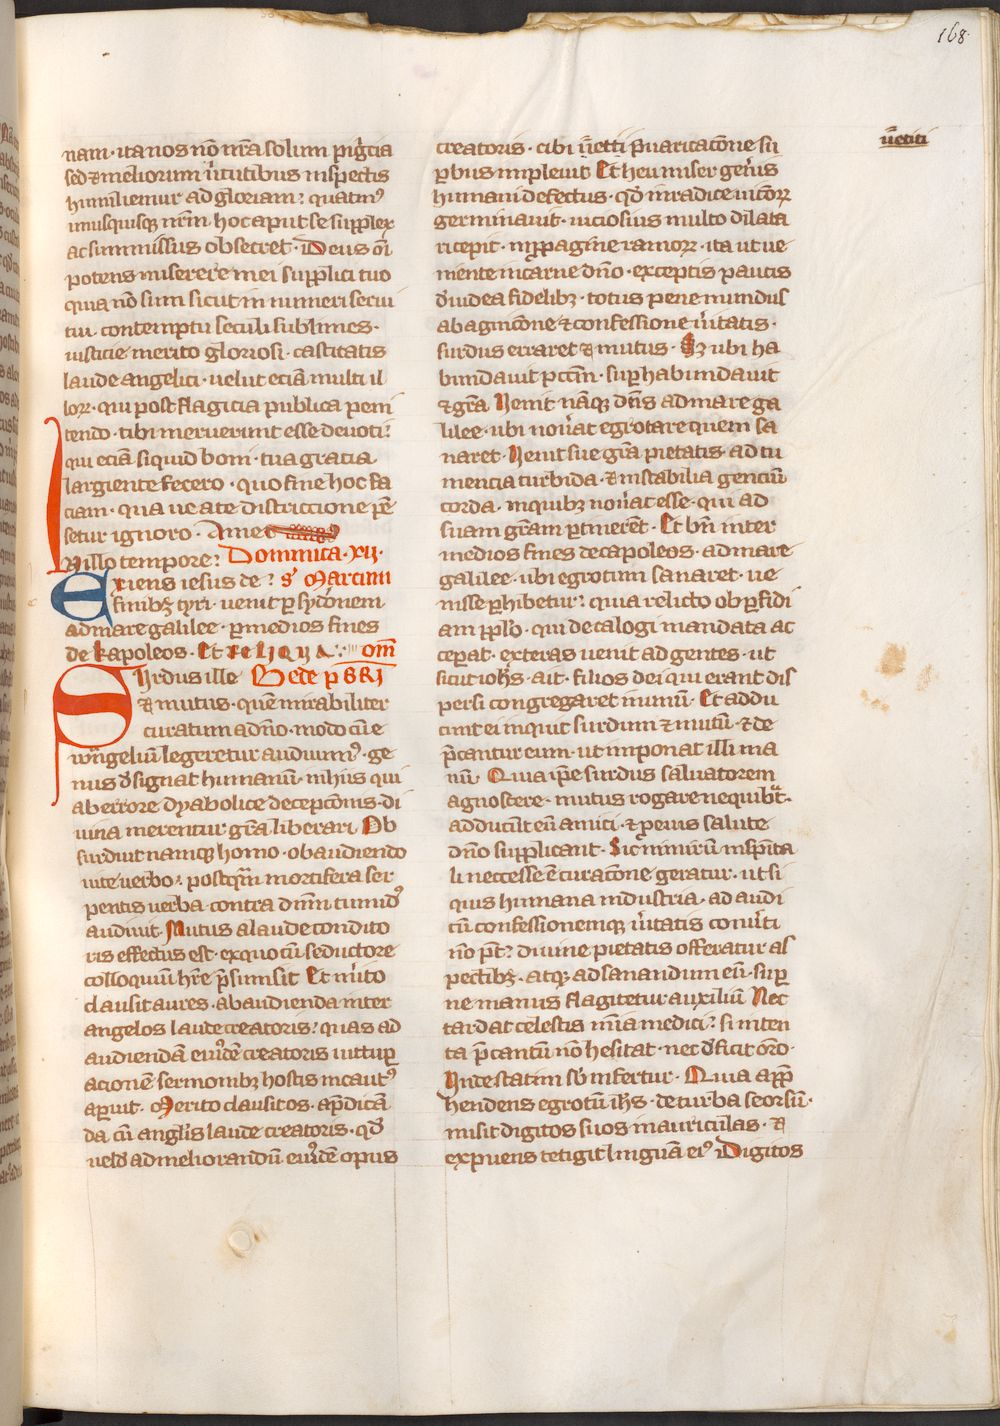 168
nam · ita nos nō nr̄a solum pigͥcia
sed ⁊ meliorum ũtutibus inspectis
humiliemur ad gloriam : quatinꝰ
unusquisqꝫ nr̄m hoc aput se supplex
ac summissus obsecret · Deus oı̄
potens miserere mei supplici tuo
quia nō sum sicut in numeri serui
tui · contemptu seculi sublimes ·
iusticie merito gloriosi · castitatis
laude angelici · uelut eciā multi il
loꝝ · qui post flagicia publica peni
tendo · tibi meruerunt esse deuoti :
qui eciā siquid boni · tua gracia
largiente fecero · quo fine hoc fa
ciam · qua ue a te districcione pē
setur ignoro · Amen
In illo tempore : Dominica · xii ·
Exiens iesus de : s' Marcum
finibꝫ tyri · uenit ꝑ sydonem
ad mare galilee · ꝑ medios fines
de kapoleos · Et reliqua · om̄
Surdus ille Bede pbri
⁊ mutus · quē mirabiliter
curatum a dn̄o · modo cū e
wāgeliū legeretur audiuimꝰ · ge
nus designat humanū · in hiis qui
ab errore dyabolice decepcōnis · di
uina merentur gr̄a liberari Ob
surduit namqꝫ homo · obaudiendo
uite uerbo · postqm̄ mortifera ser
pentis uerba · contra dn̄m tumidꝰ
audiuit · Mutus a laude condito
ris effectus est · ex quo cū seductore
colloquiū hr̄e p̄sumsit Et mͥito
clausit aures · ab audienda inter
angelos laude creatoris : quas ad
audiendā eiusdē creatoris uitupꝑ
acionē sermonibꝫ hostis incautꝰ
aꝑuit · Merito clausit os · a p̄dicā
da cū angͤlis laude creatoris · qd̓
uelud ad meliorandū eiusdē opus
creatoris · cibi ūetiti p̄uaricacōne su
ꝑbus impleuit Et heu miser genͥis
humani defectus · qd̓ in radice uicioꝝ
germinauit · uiciosius multo dilata
ri cepit · in ꝓpagine ramoꝝ · ita ut ue
niente in carne dn̄o · exceptis paucis
d̓ iudea fidelibꝫ · totus pene mundus
ab agnicōne ⁊ confessione ũitatis ·
surdus erraret ⁊ mutus · Sꝫ ubi ha
bundauit pctm̄ · suꝑhabundauit
⁊ gr̄a Uenit nāqꝫ dn̄s ad mare ga
lilee · ubi nouͣat egrotare quem sa
naret · Uenit sue gr̄a pietatis · ad tu
mencia turbida · ⁊ instabilia genciū
corda · in quibꝫ nouͣat esse · qui ad
suam gr̄am ꝑtinerēt · Et bn̄ inter
medios fines decapoleos · ad mare
galilee · ubi egrotum sanaret · ue
nisse ꝑhibetur : quia relicto ob ꝑfidi
am ppl̓o · qui decalogi mandata ac
cepat · exteras uenit ad gentes · ut
sicut ioh̄s · ait · filios dei qui erant dis
persi congregaret in unū · Et addu
cunt ei inquit surdum ⁊ mutū · ⁊ de
p̄cantur eum · ut imponat illi ma
nū · Quia ip̄e surdus saluatorem
agnoscere · mutus rogare nequibͣt ·
adducūt eū amici · ⁊ ꝓ eius salute
dn̄o supplicant · Sic nimirū in spīta
li neccesse ē curacōne geratur · ut si
quis humana industria · ad audi
tū confessionemqꝫ ũitatis conuͥti
nō pōt : diuine pietatis offeratur as
pectibꝫ · atqꝫ ad sanandum eū · suꝑ
ne manus flagitetur auxiliū Nec
tardat celestis mīa medici : si inten
ta p̄cantū nō hesitat · nec d̓ficit or̄o ·
Unde statim sb̓ infertur · Quia app̄
hendens egrotū ih̄s · de turba seorsū ·
misit digitos suos in auriculas · ⁊
expuens tetigit linguā eiꝰ Digitos
ūetiti